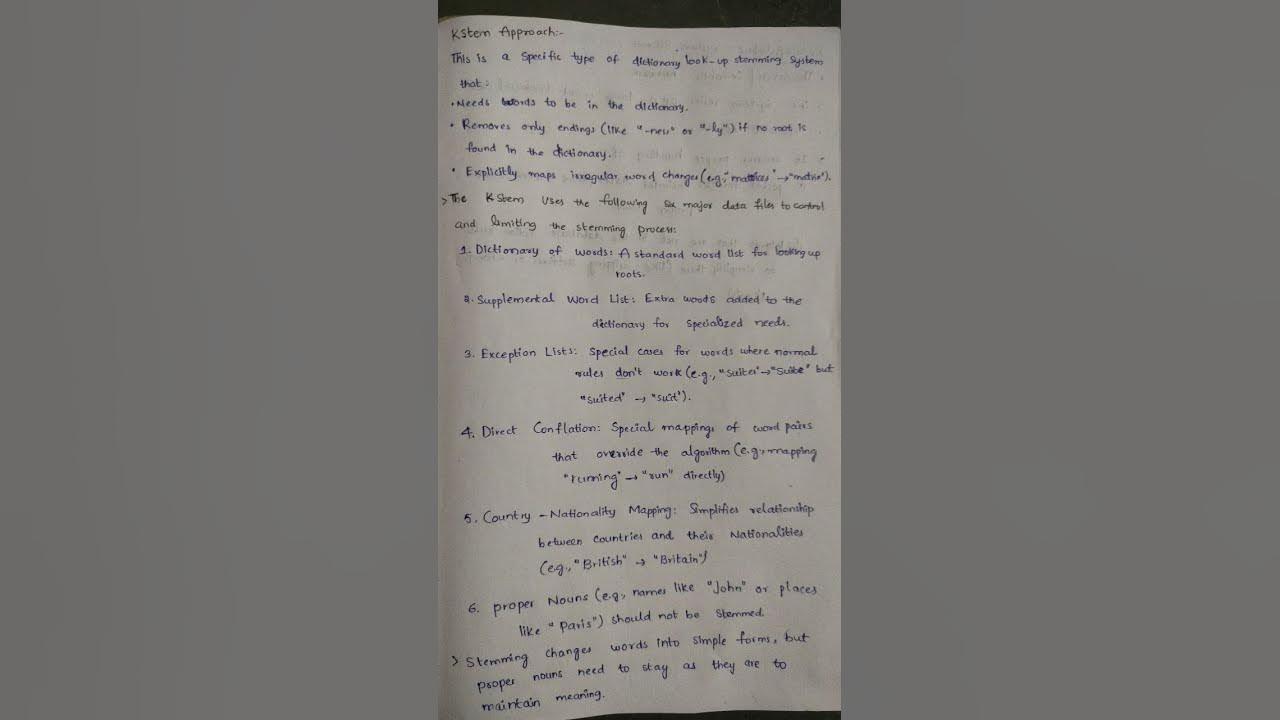 KStem Approach:-
This is a specific type of dictionary look-up stemming system
that:
• Needs words to be in the dictionary.
• Removes only endings (like "-ness" or "-ly") if no root is
found in the dictionary.
• Explicitly maps irregular word changes (e.g., "matrices" → "matrix").
> The KStem uses the following six major data files to control
and limiting the stemming process:
1. Dictionary of words: A standard word list for looking up
roots.
2. Supplemental Word List: Extra words added to the
dictionary for specialized needs.
3. Exception Lists: Special cases for words where normal
rules don't work (e.g., "suites" → "suite" but
"suited" → "suit").
4. Direct Conflation: Special mappings of word pairs
that override the algorithm (e.g., mapping
"running" → "run" directly)
5. Country - Nationality Mapping: Simplifies relationship
between countries and their Nationalities
(e.g., "British" → "Britain")
6. proper Nouns (e.g., names like "John" or places
like "Paris") should not be stemmed.
> Stemming changes words into simple forms, but
proper nouns need to stay as they are to
maintain meaning.